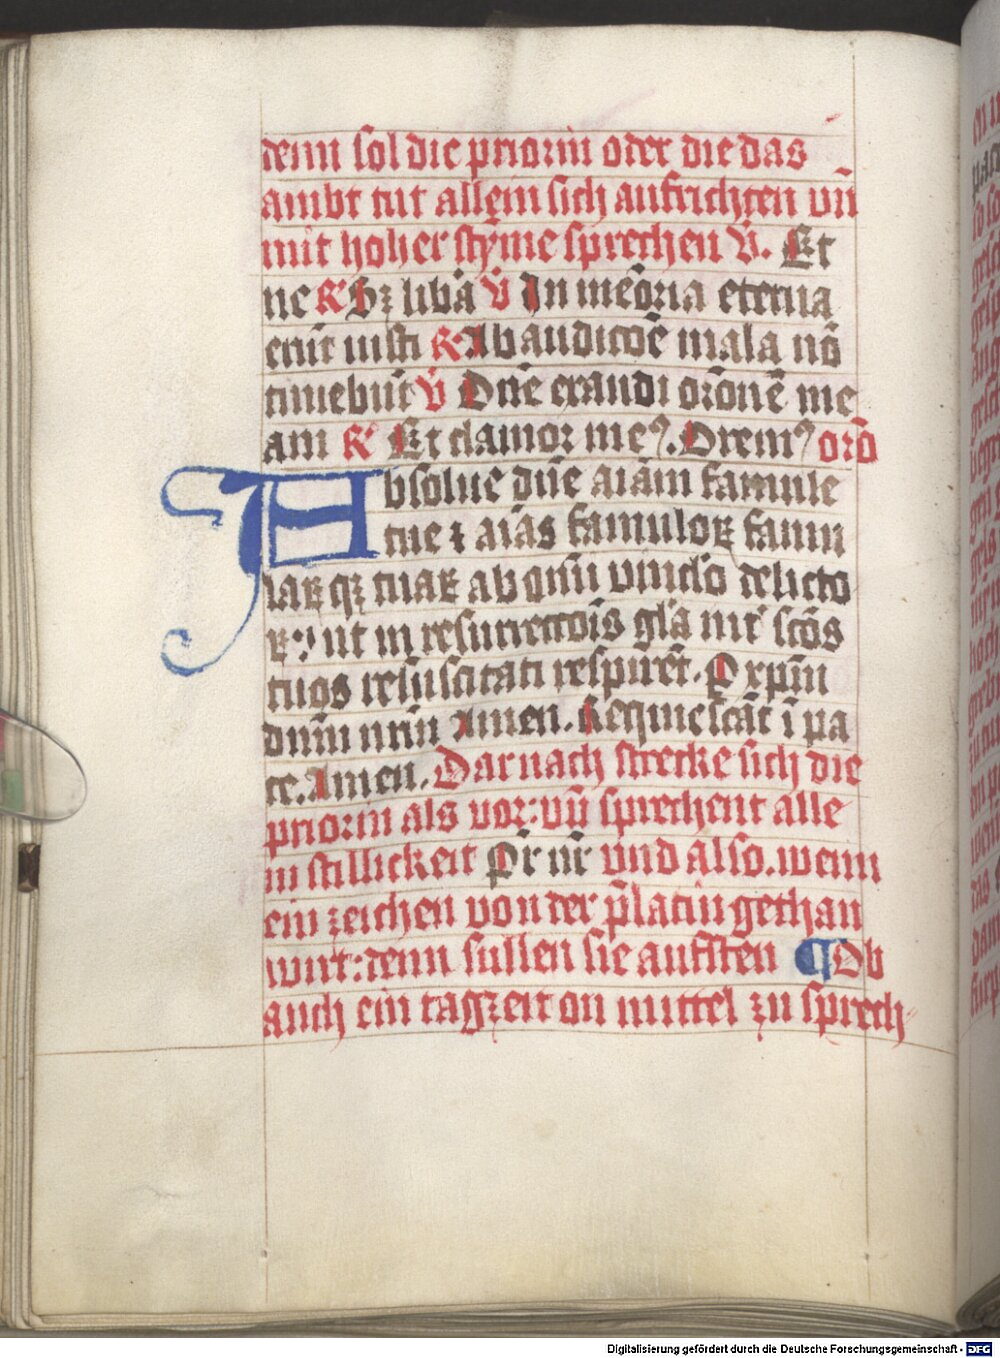 denn sol die priorin oder die das
ambt tut allein sich aufrichten vn̄
mit hoher stȳme sprechen v̄. Et
ne R̸ Sꝫ liba v̄ In mēoria eterna
erūt iusti R̸ Ab auditōē mala nō
timebūt v̄ Dn̄e exaudi orōnē me
am R̸ Et clamor meꝰ. Oremꝰ orō
Absolue dn̄e aīam famule
tue ⁊ aīas famuloꝝ famu
laꝝ qꝫ tuaꝝ ab om̄i vinclo delicto
ꝝ: ut in resurrectōīs glā int̄ scōs
tuos resuscitati respirēt. P xpm̄
dnm̄ nrm̄ Amen. Requiescāt ī pa
ce. Amen. Darnach strecke sich die
priorin als vor: vn̄ sprechent alle
in stillickeit Pr̄ nr̄ vnd also. wenn
ein zeichen von der p̄latin gethan
wirt: denn sullen sie aufsten ¶ Ob
auch ein tagzeit on mittel zu sprech⸗
Digitalisierung gefördert durch die Deutsche Forschungsgemeinschaft - DFG